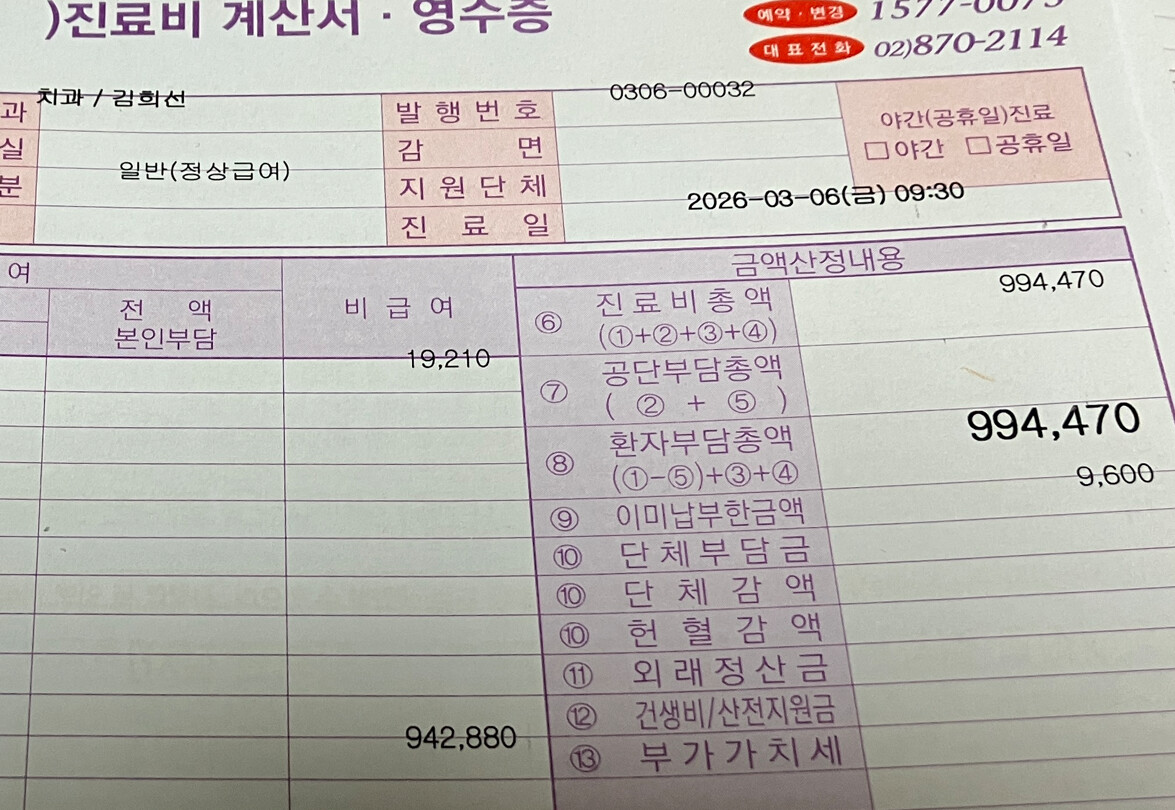 )진료비 계산서 · 영수증
예약 · 변경 1577-0075
대표전화 02)870-2114
과 치과 / 김희선 발행번호 0306-00032 야간(공휴일)진료
실 감 면 □야간 □공휴일
분 일반(정상급여) 지원단체
진 료 일 2026-03-06(금) 09:30
여 금액산정내용
전 액 본인부담
비 급 여
⑥ 진료비총액 994,470
(①+②+③+④)
19,210
⑦ 공단부담총액
( ② + ⑤ )
⑧ 환자부담총액 994,470
(①-⑤)+③+④ 9,600
⑨ 이미납부한금액
⑩ 단체부담금
⑩ 단 체 감 액
⑩ 헌 혈 감 액
⑪ 외래정산금
⑫ 건생비/산전지원금
942,880
⑬ 부가가치세